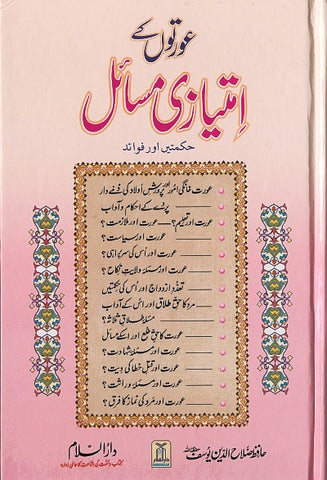 عورتوں کے
امتیازی مسائل
حکمتیں اور فوائد
عورت خانگی امور اور پرورش اولاد کی ذمے دار
پردے کے احکام و آداب
عورت اور تعلیم؟ — عورت اور ملازمت؟
عورت اور سیاست؟
عورت اور اُس کی سربراہی؟
عورت اور مسئلہ ولایتِ نکاح؟
تعددِ ازدواج اور اُس کی حکمتیں
مرد کا حقِ طلاق اور اس کے آداب
مسئلہ طلاقِ ثلاثہ؟
عورت کا حقِ خلع اور اسکے مسائل
عورت اور مسئلہ شہادت؟
عورت اور قتلِ خطا کی دیت؟
عورت اور مسئلہ وراثت؟
عورت اور مرد کی نماز کا فرق؟
حافظ صلاح الدین یوسف حفظہ اللہ
دارالسلام
کتاب و سنت کی اشاعت کا عالمی ادارہ
DARUSSALAM